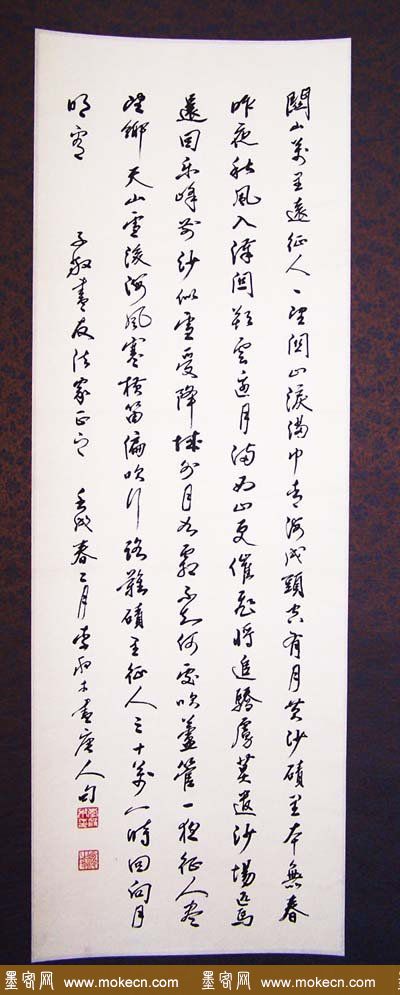 關山萬里遠征人一望關山淚滿巾青海戍頭空有月黃沙磧里本無春
昨夜秋風入漢關朔雲邊月滿西山更催飛將追驕虜莫遣沙場匹馬
還回樂峰前沙似雪受降城外月如霜不知何處吹蘆管一夜征人盡
望鄉天山雪後海風寒橫笛偏吹行路難磧里征人三十萬一時回向月
明看 子敬 友法家正之 壬戌春二月李 木書唐人句
墨客网 www.mokecn.com 墨客网 www.mokecn.com 墨客网 www.mokecn.com